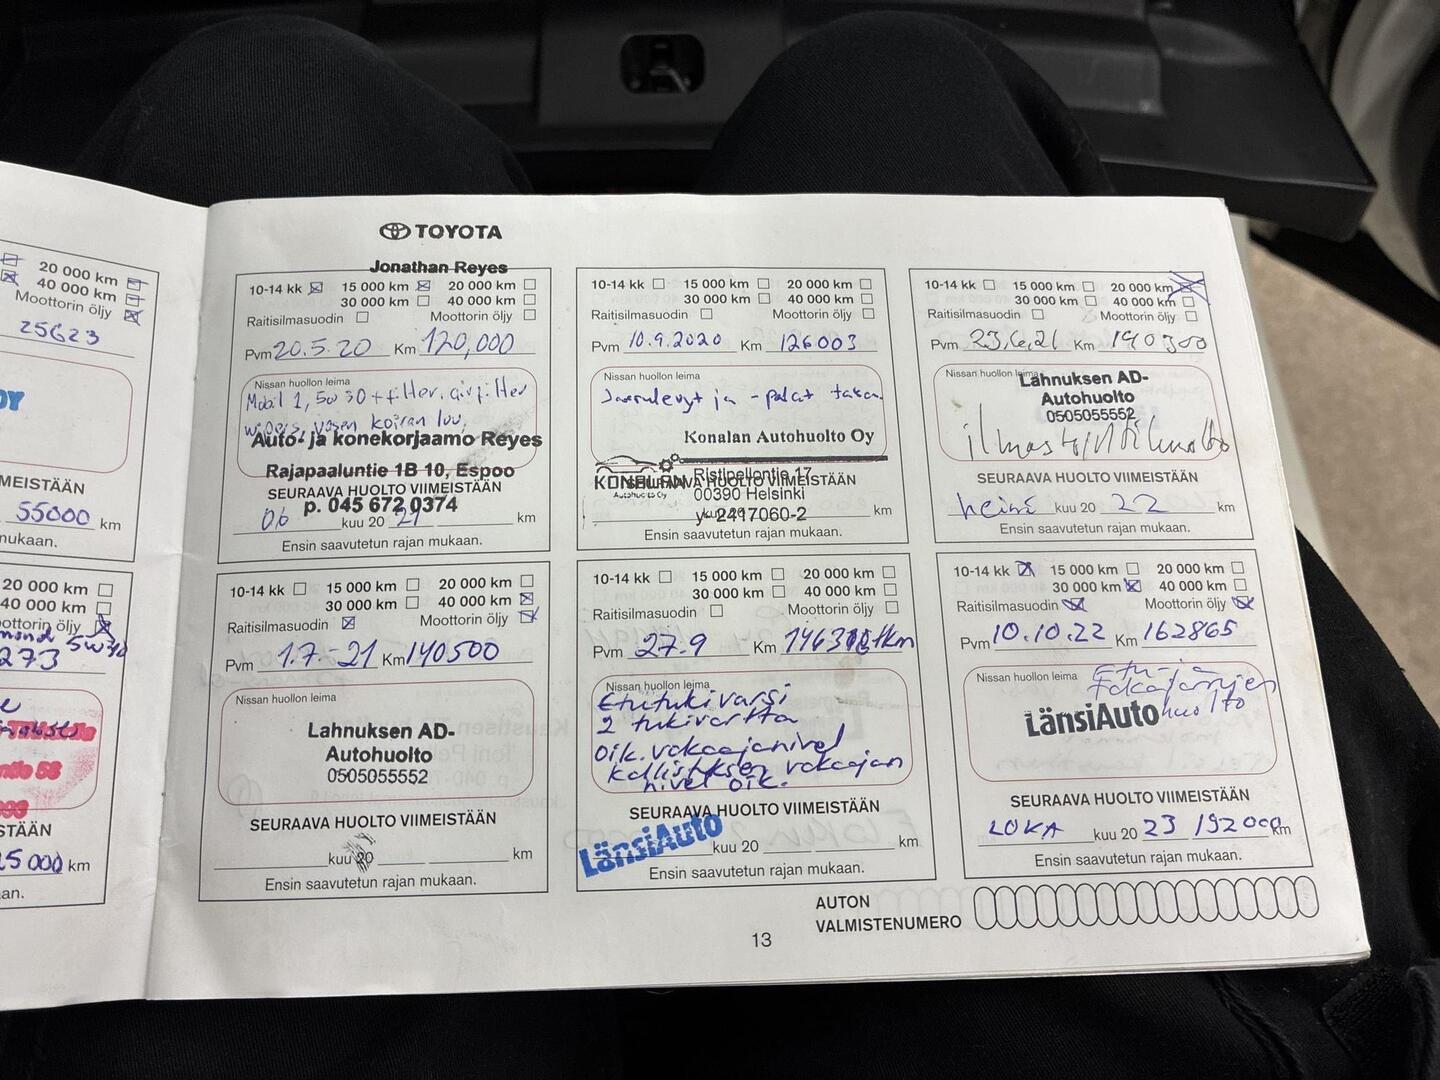 20 000 km
40 000 km
Moottorin öljy
25623
OY
55000 km
20 000 km
40 000 km
5W30
273
58
25000 km
TOYOTA
Jonathan Reyes
10-14 kk 15 000 km 20 000 km
30 000 km 40 000 km
Raitisilmasuodin Moottorin öljy
Pvm 20.5.20 Km 120,000
Nissan huollon leima
Mobil 1, 5w30 + filter. airfilter
wipers, vasen koiran luu,
Auto- ja konekorjaamo Reyes
Rajapaaluntie 1B 10, Espoo
SEURAAVA HUOLTO VIIMEISTÄÄN
p. 045 672 0374
06 kuu 20 21 km
Ensin saavutetun rajan mukaan.
10-14 kk 15 000 km 20 000 km
30 000 km 40 000 km
Raitisilmasuodin Moottorin öljy
Pvm 10.9.2020 Km 126003
Nissan huollon leima
Jarrulevyt ja -palat taka
Konalan Autohuolto Oy
KONALAN
Autohuolto Oy
Ristipellontie 17
SEURAAVA HUOLTO VIIMEISTÄÄN
00390 Helsinki
y-2417060-2
kuu 20 km
Ensin saavutetun rajan mukaan.
10-14 kk 15 000 km 20 000 km
30 000 km 40 000 km
Raitisilmasuodin Moottorin öljy
Pvm 23.6.21 Km 140300
Nissan huollon leima
Lahnuksen AD-
Autohuolto
0505055552
ilmastointihuolto
SEURAAVA HUOLTO VIIMEISTÄÄN
heinä kuu 20 22 km
Ensin saavutetun rajan mukaan.
10-14 kk 15 000 km 20 000 km
30 000 km 40 000 km
Raitisilmasuodin Moottorin öljy
Pvm 1.7.-21 Km 140500
Nissan huollon leima
Lahnuksen AD-
Autohuolto
0505055552
SEURAAVA HUOLTO VIIMEISTÄÄN
kuu 20 km
Ensin saavutetun rajan mukaan.
10-14 kk 15 000 km 20 000 km
30 000 km 40 000 km
Raitisilmasuodin Moottorin öljy
Pvm 27.9 Km
Nissan huollon leima
Etutukivarsi
2 tukivartta
oik. vakaajanivel
kallistuksen vakaajan
nivel oik.
SEURAAVA HUOLTO VIIMEISTÄÄN
LänsiAuto
kuu 20 km
Ensin saavutetun rajan mukaan.
10-14 kk 15 000 km 20 000 km
30 000 km 40 000 km
Raitisilmasuodin Moottorin öljy
Pvm 10.10.22 Km 162865
Nissan huollon leima
Etu- ja
takajarrujen
huolto
LänsiAuto
SEURAAVA HUOLTO VIIMEISTÄÄN
LOKA kuu 20 23 192000 km
Ensin saavutetun rajan mukaan.
AUTON
VALMISTENUMERO
13